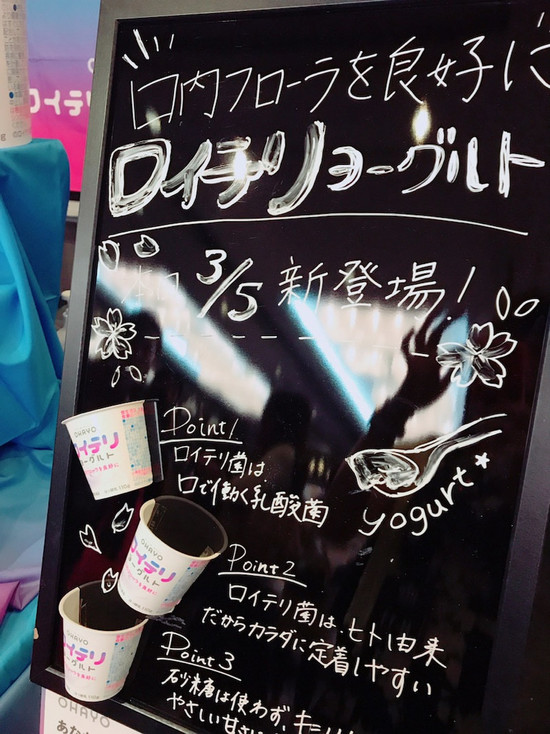 口内フローラを良好に
ロイテリヨーグルト
本日 3/5 新登場!
Point1
ロイテリ菌は
口で働く乳酸菌
yogurt
Point2
ロイテリ菌は、ヒト由来
だからカラダに定着しやすい
Point3
砂糖は使わず、キシリ
やさしい甘さ
OHAYO
ロイテリ
ヨーグルト
OHAYO
ロイテリ
ヨーグルト
OHAYO
ロイテリ
ヨーグルト
ロイテリ
OHAYO
あな